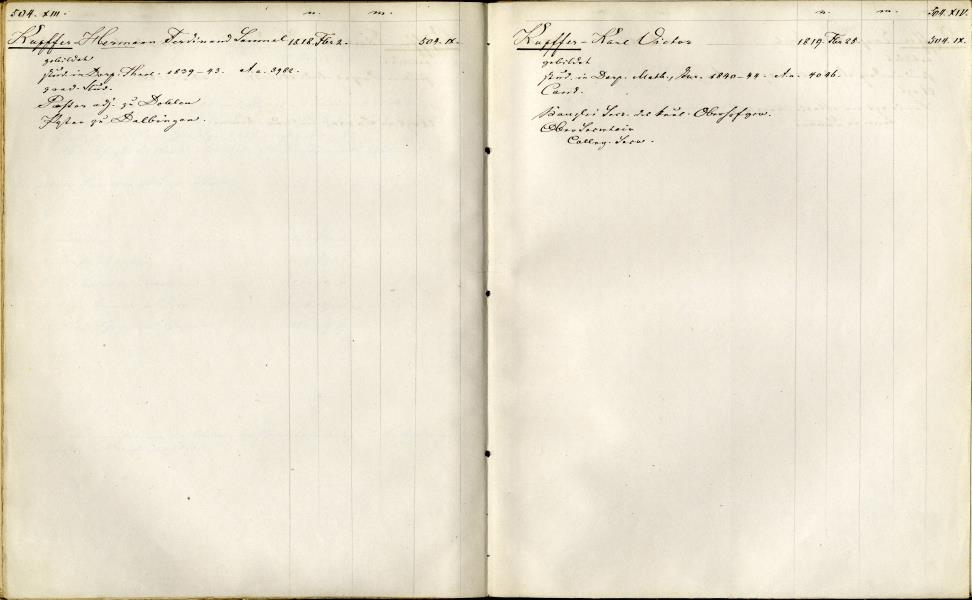 504. XIII. n. m.
Kupffer - Hermann Ferdinand Samuel 1818. Fbr 2. 504. IX.
gebildet
stud. in Dorp. Theol. 1839-43. A.a. 3982.
grad. Stud.
Pastor adj. zu Doblen
Pastor zu Dalbingen.
n. m. 504. XIV.
Kupffer - Karl Victor 1819. Fbr 25 504. IX.
gebildet
stud. in Dorp. Math., Jur. 1840-44. A.a. 4046.
Cand.
Kanzlei Secr. des kurl. Oberhofger.
Colleg. Secr.